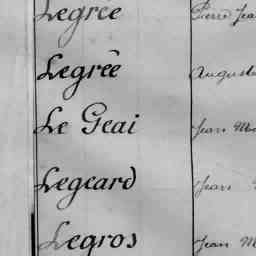 Legrée Pierre Jea
Legrée Auguste
Le Geai Jean Ma
Legeard Jean
Legros Jean M